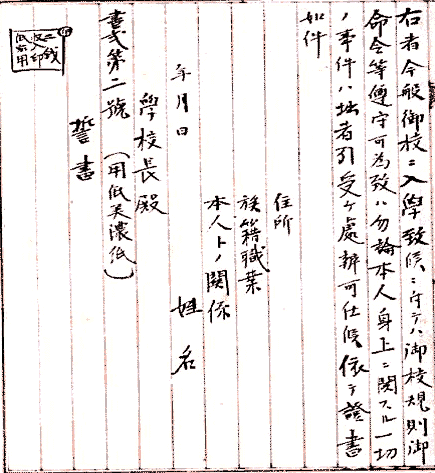 右者今般御校ニ入學致候ニ守テハ御校規則御
命令等遵守可為致ハ勿論本人身上ニ関スル一切
ノ事件ハ拙者引受ケ處辨可仕候依テ證書
如件
住所
族籍職業
本人トノ関係
姓名
年月日
學校長殿
書式第二號（用低美濃低）
誓書
三錢
収入印
低霜用